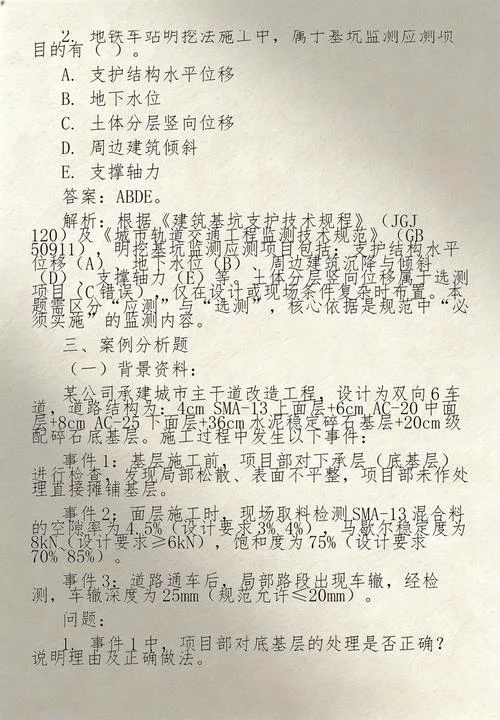 2. 地铁车站明挖法施工中，属于基坑监测应测项
目的有（ ）。
A. 支护结构水平位移
B. 地下水位
C. 土体分层竖向位移
D. 周边建筑倾斜
E. 支撑轴力
答案：ABDE。
解析：根据《建筑基坑支护技术规程》（JGJ
120）及《城市轨道交通工程监测技术规范》（GB
50911），明挖基坑监测应测项目包括：支护结构水平
位移（A）、地下水位（B）、周边建筑沉降与倾斜
（D）、支撑轴力（E）等。土体分层竖向位移属于选测
项目（C错误），仅在设计或现场条件复杂时布置。本
题需区分“应测”与“选测”，核心依据是规范中“必
须实施”的监测内容。
三、案例分析题
（一）背景资料：
某公司承建城市主干道改造工程，设计为双向6车
道，道路结构为：4cm SMA-13上面层+6cm AC-20中面
层+8cm AC-25下面层+36cm水泥稳定碎石基层+20cm级
配碎石底基层。施工过程中发生以下事件：
事件1：基层施工前，项目部对下承层（底基层）
进行检查，发现局部松散、表面不平整，项目部未作处
理直接摊铺基层。
事件2：面层施工时，现场取料检测SMA-13混合料
的空隙率为4.5%（设计要求3% 4%），马歇尔稳定度为
8kN（设计要求≥6kN），饱和度为75%（设计要求
70% 85%）。
事件3：道路通车后，局部路段出现车辙，经检
测，车辙深度为25mm（规范允许≤20mm）。
问题：
1. 事件1中，项目部对底基层的处理是否正确？
说明理由及正确做法。